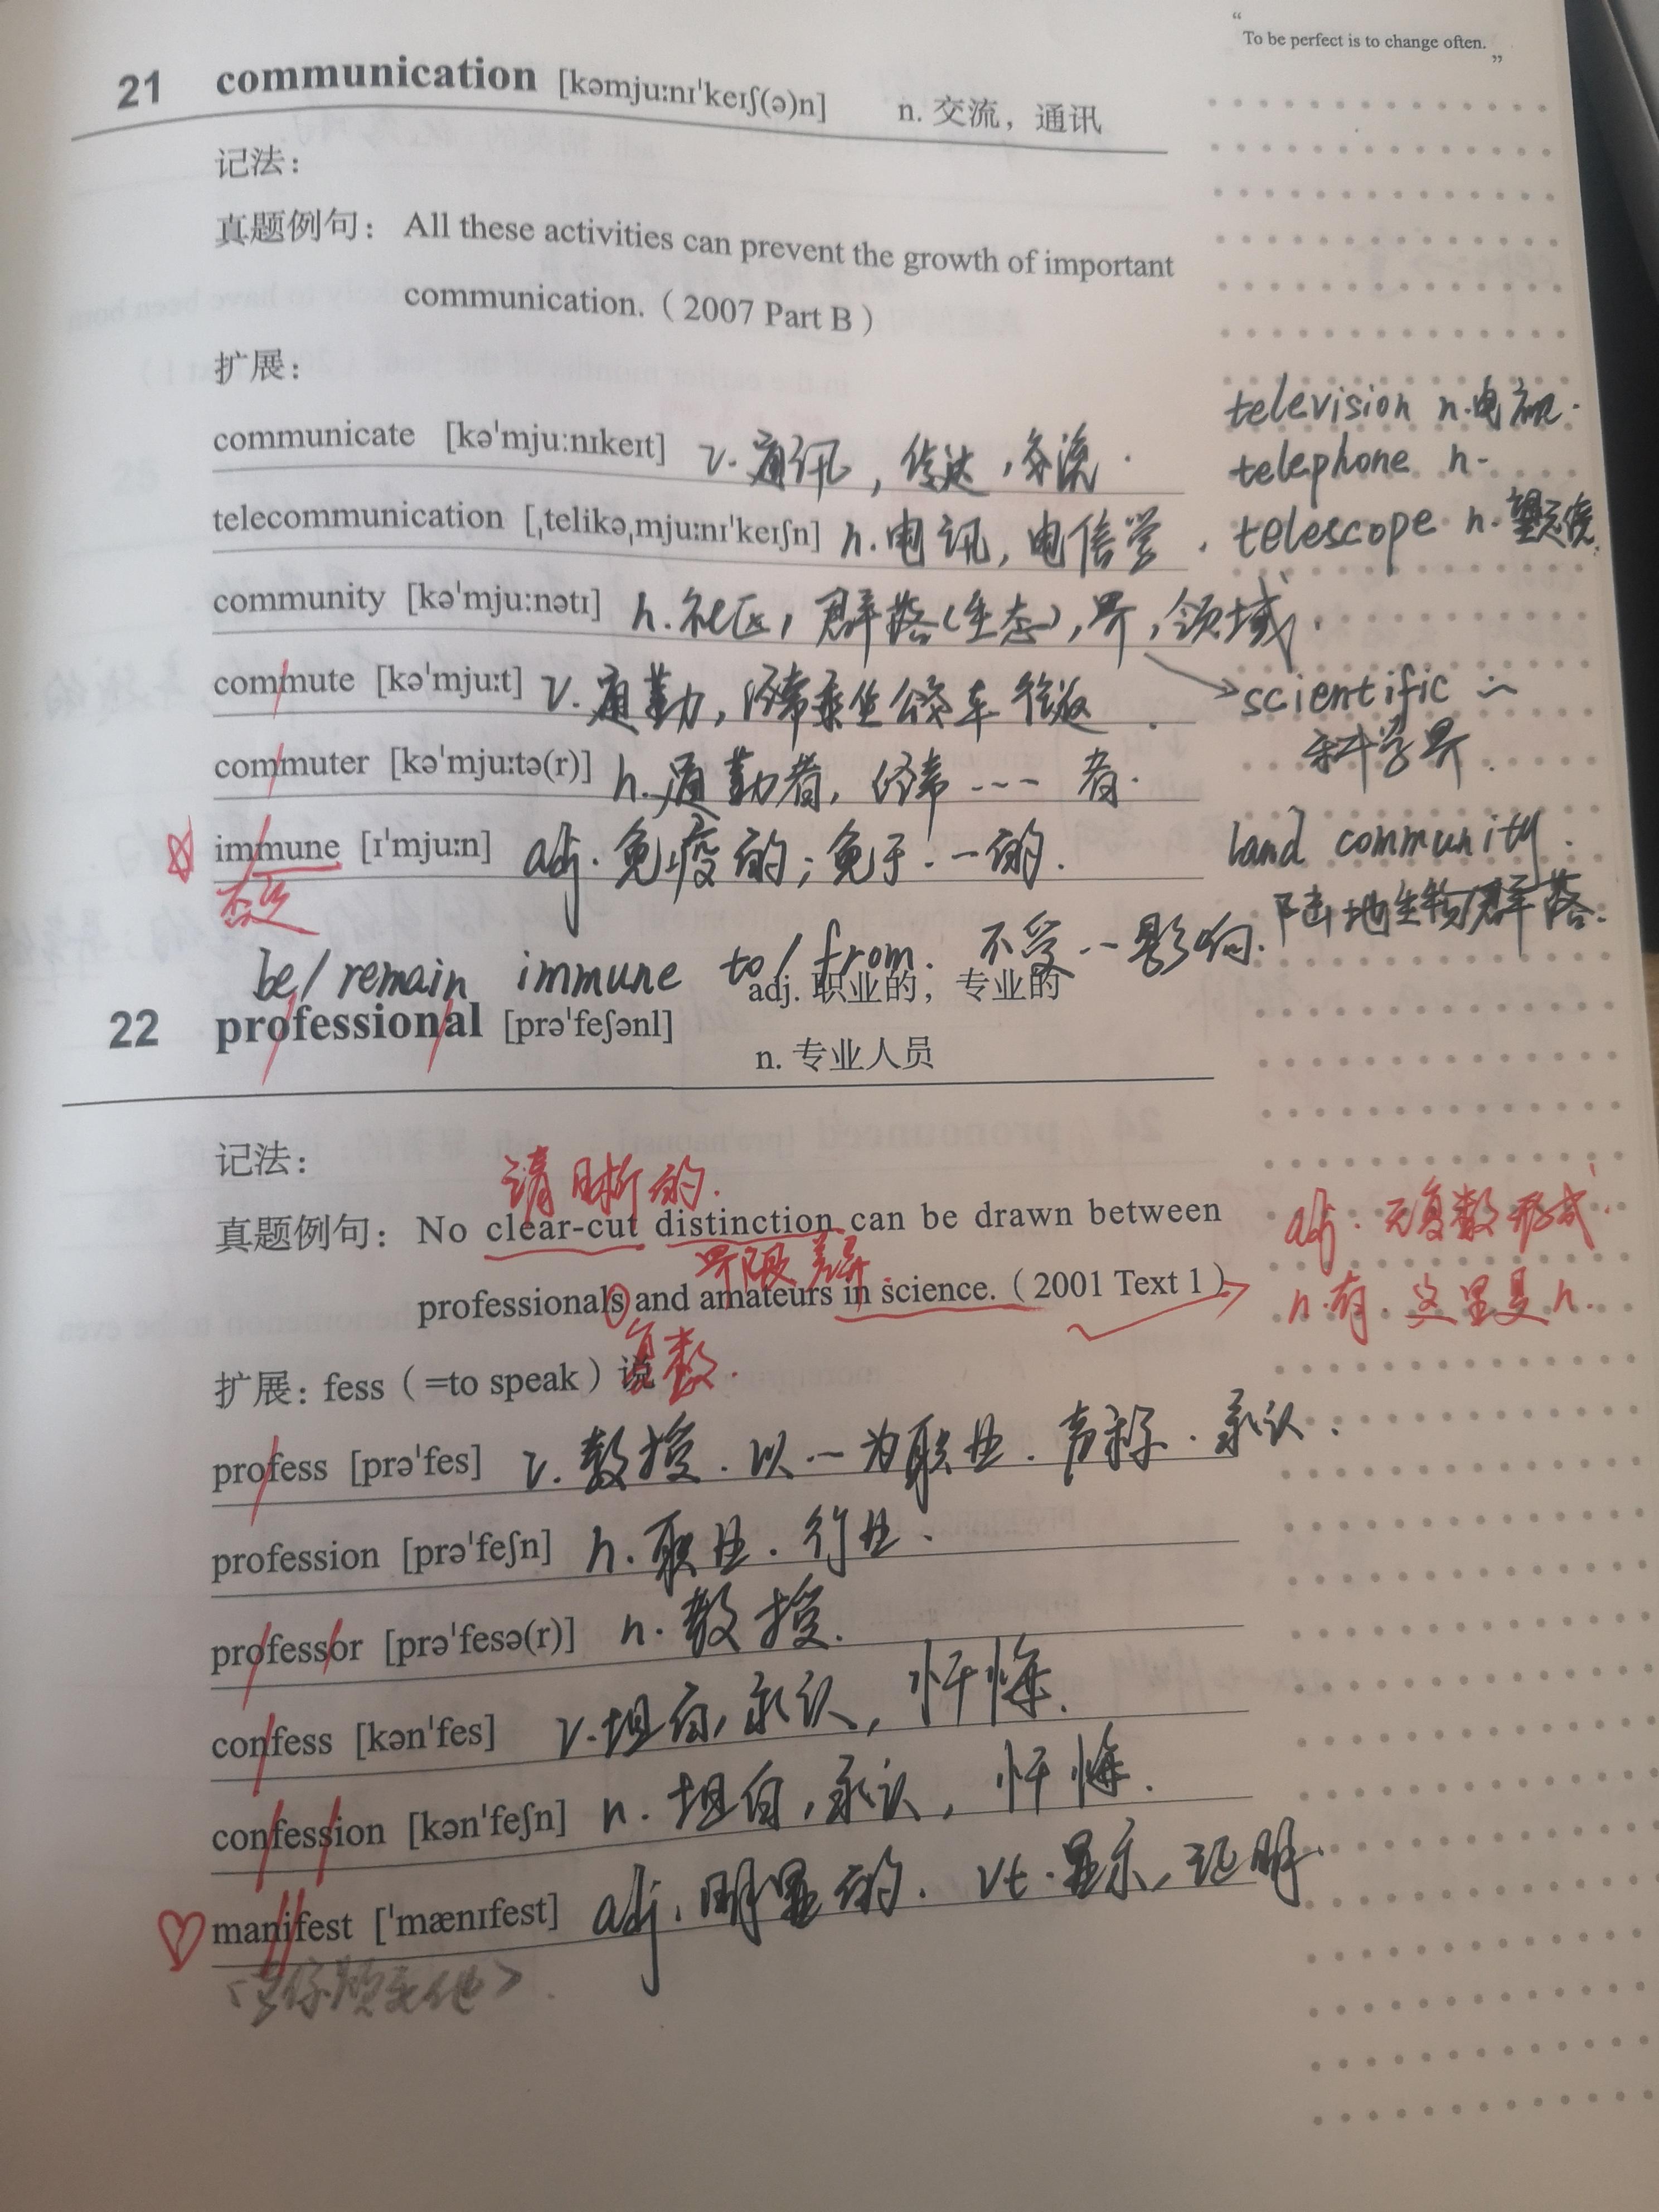 “
To be perfect is to change often.
”
21 communication [kəmjuːnɪˈkeɪʃ(ə)n] n. 交流，通讯
记法：
真题例句： All these activities can prevent the growth of important
communication.（2007 Part B）
扩展：
communicate [kəˈmjuːnɪkeɪt] v. 通讯，传达，交流.
telecommunication [ˌtelikəˌmjuːnɪˈkeɪʃn] n. 电讯，电信学.
community [kəˈmjuːnətɪ] n. 社区，群落(生态)，界，领域.
commute [kəˈmjuːt] v. 通勤，经常乘坐公交车往返.
commuter [kəˈmjuːtə(r)] n. 通勤者，经常---者.
immune [ɪˈmjuːn] adj. 免疫的；免于--的.
be/remain immune to/from. 不受--影响.
television n. 电视.
telephone n.
telescope n. 望远镜.
scientific ～
科学界.
land community.
陆地生物群落.
22 professional [prəˈfeʃənl] adj. 职业的，专业的
n. 专业人员
记法：
清晰的.
真题例句： No clear-cut distinction can be drawn between
界限 差异.
professionals and amateurs in science.（2001 Text 1）
复数.
adj. 无复数形式.
n. 有. 这里是n.
扩展：fess（=to speak）说
profess [prəˈfes] v. 教授. 以--为职业. 声称. 承认.
profession [prəˈfeʃn] n. 职业. 行业.
professor [prəˈfesə(r)] n. 教授.
confess [kənˈfes] v. 坦白，承认，忏悔.
confession [kənˈfeʃn] n. 坦白，承认，忏悔.
manifest [ˈmænɪfest] adj. 明显的. vt. 显示，证明.